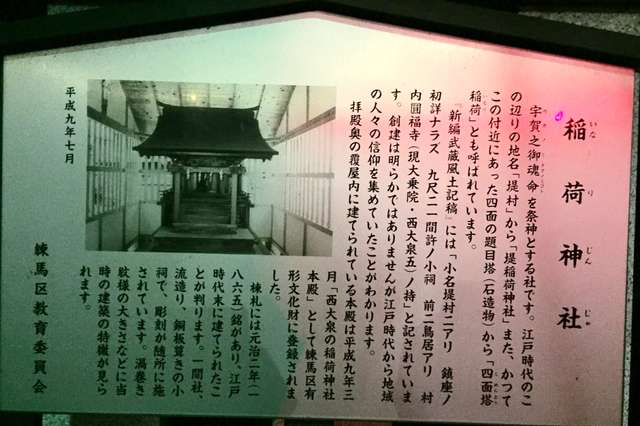 稲荷神社
いなりじんじゃ
宇賀之御魂命を祭神とする社です。江戸時代のこ
の辺りの地名「堤村」から「堤稲荷神社」また、かつて
この付近にあった四面の題目塔（石造物）から「四面塔
稲荷」とも呼ばれています。
『新編武蔵風土記稿』には「小名堤村ニアリ 鎮座ノ
初詳ナラズ 九尺ニ一間許ノ小祠 前ニ鳥居アリ 村
内圓福寺（現大乗院・西大泉五）ノ持」と記されていま
す。創建は明らかではありませんが江戸時代から地域
の人々の信仰を集めていたことがわかります。
拝殿奥の覆屋内に建てられている本殿は平成九年三
月「西大泉の稲荷神社
本殿」として練馬区有
形文化財に登録されま
した。
棟札には元治二年（一
八六五）銘があり、江戸
時代末に建てられたこ
とが判ります。一間社、
流造り、銅板葺きの小
祠で、彫刻が随所に施
されています。渦巻き
紋様の大きさなどに当
時の建築の特徴が見ら
れます。
平成九年七月
練馬区教育委員会